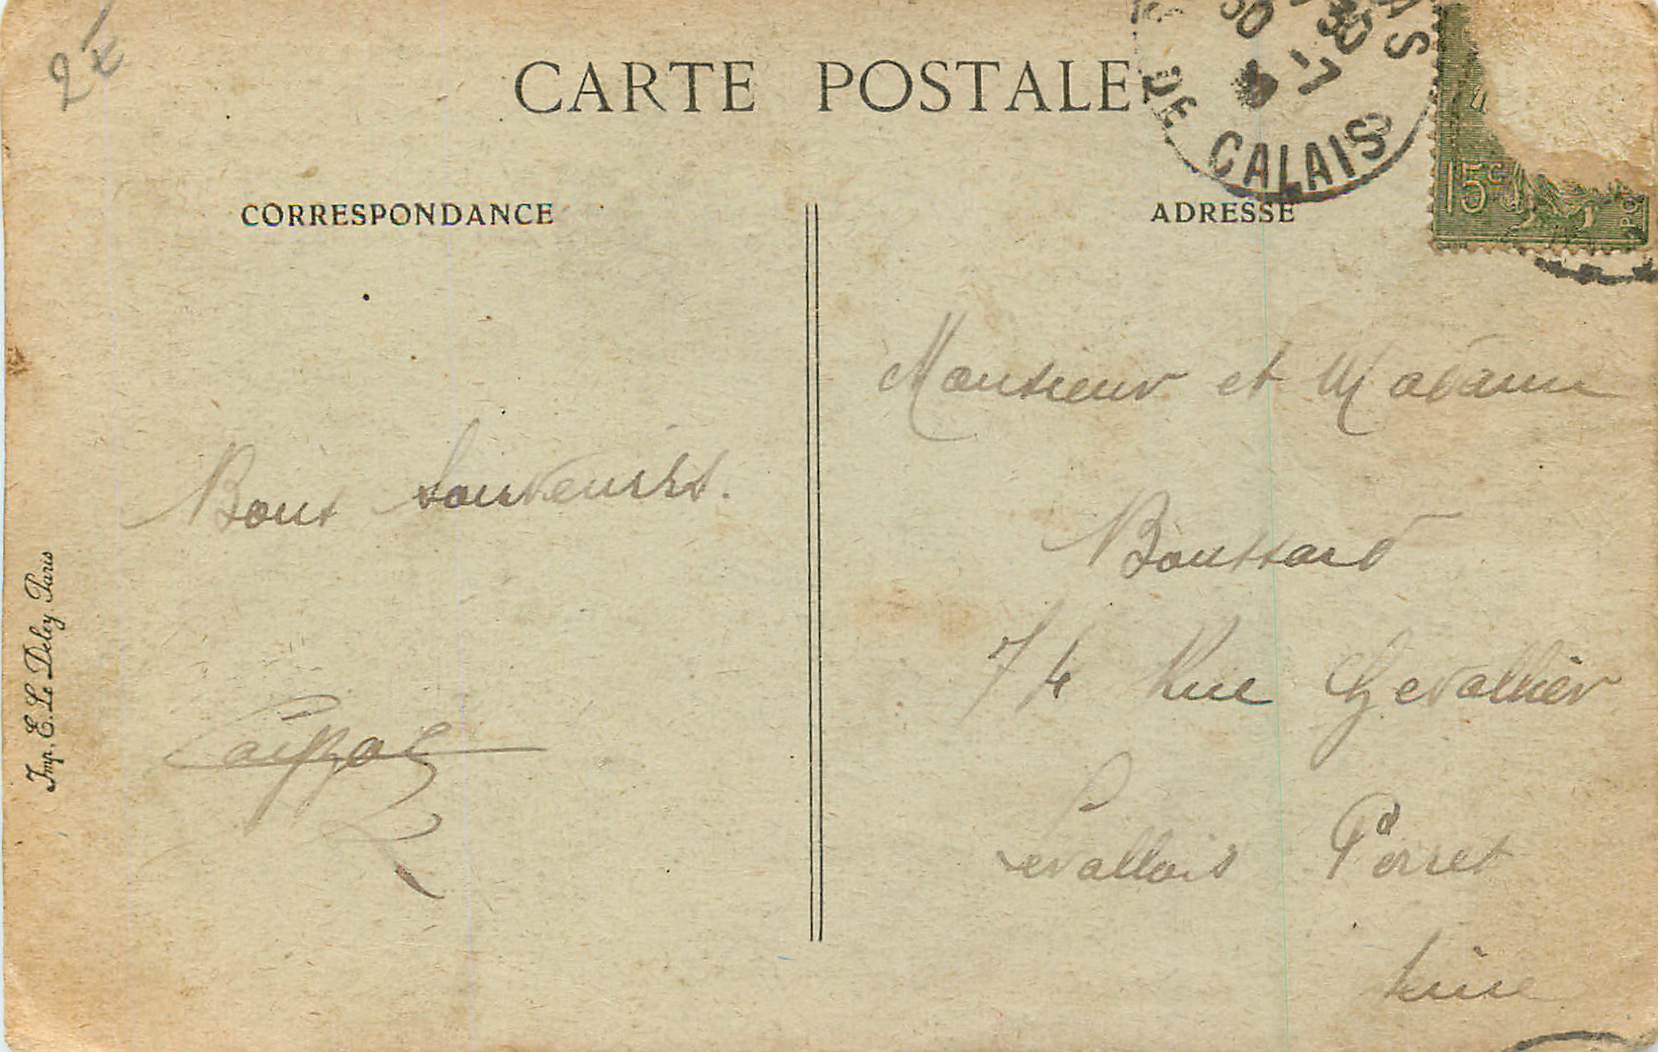 2 €
CARTE POSTALE
30
30
AS
7
DE CALAIS
15c
CORRESPONDANCE
ADRESSE
Monsieur et Madame
Bons souvenirs.
Boussard
74 Rue Chevallier
Levallois Perret
Seine
Imp. E. Le Deley Paris